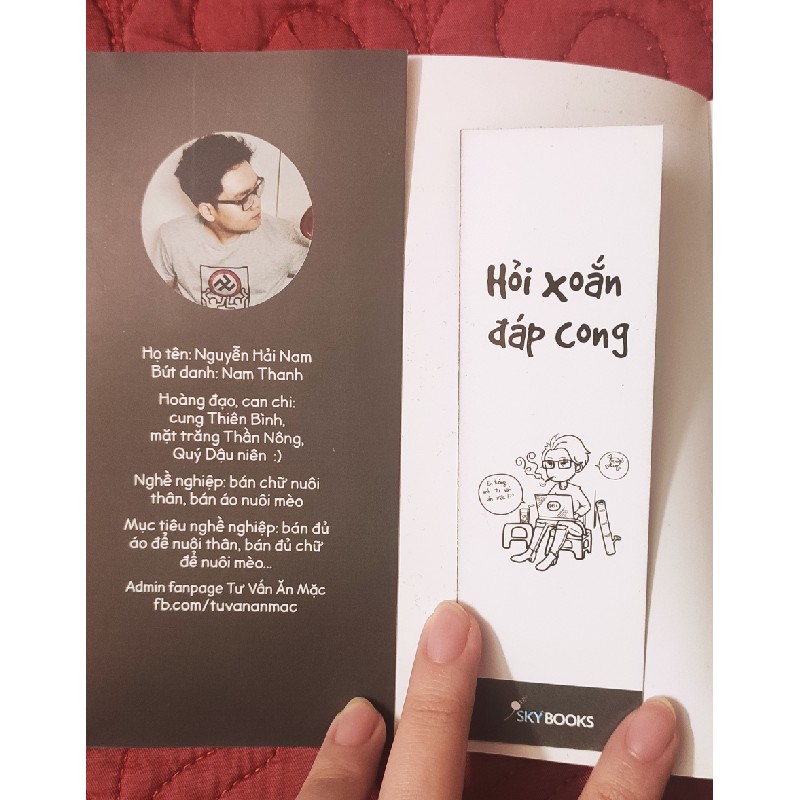 Họ tên: Nguyễn Hải Nam
Bút danh: Nam Thanh
Hoàng đạo, can chi:
cung Thiên Bình,
mặt trăng Thần Nông,
Quý Dậu niên :)
Nghề nghiệp: bán chữ nuôi
thân, bán áo nuôi mèo
Mục tiêu nghề nghiệp: bán đủ
áo để nuôi thân, bán đủ chữ
để nuôi mèo...
Admin fanpage Tư Vấn Ăn Mặc
fb.com/tuvananmac
Hỏi xoắn
đáp cong
SKYBOOKS